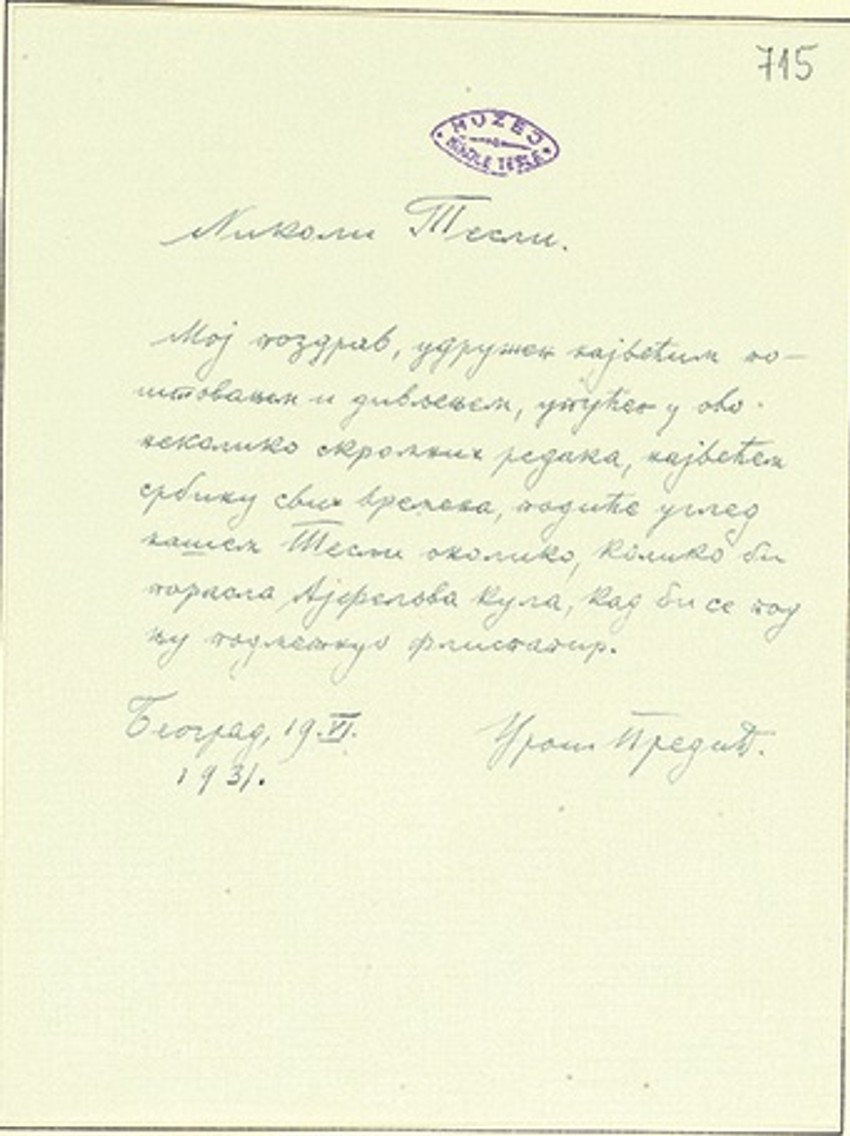 715
MUZEJ
NIKOLE TESLE
Николи Тесли.
Мој поздрав, удружен највећим по-
штовањем и дивљењем, упућен у ово
неколико скромних редака, највећем
србину свих времена, подиће углед
нашем Тесли онолико, колико би
порасла Ајфелова кула, кад би се под
њу подметнуо флиспапир.
Београд, 19.VI.
1931.
Урош Предић.